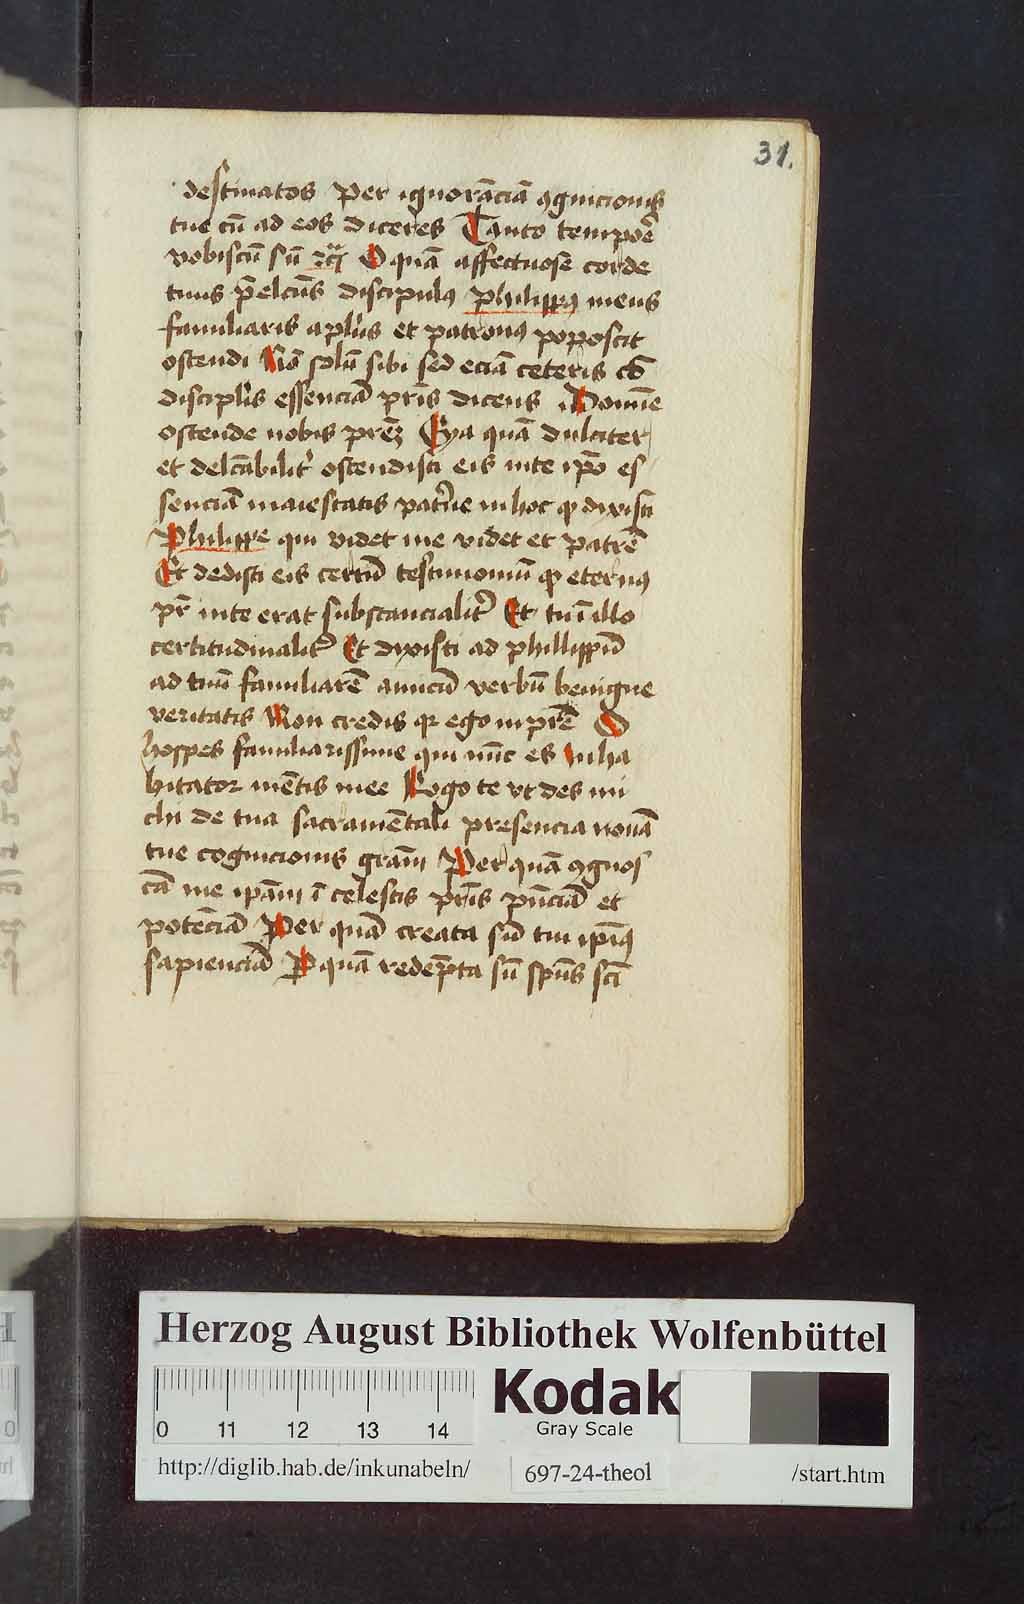 31.
destinatos Per ignorãciã ꝯgnicionis
tue cũ ad eos diceres Tanto tempoē
vobiscũ sũ O quã affectuose corde
tuus p̄elcūs discipulꝰ philippꝰ meus
familiaris aplūs et patronꝰ poposcit
ostendi Nō solũ sibi sed eciã ceteris
discipl'is essenciã pr̄is dicens Domīe
ostende nobis prēȝ Eya quã dulciter
et delc̄abilit' ostendisti eis in te ip̄o es
senciã maiestatis pat'ne in hoc ꝙ dixisti
Philippe qui videt me videt et patrē
Et dedisti eis certũ testimoniũ ꝙ eternꝰ
pr̄ in te erat substancialit' Et tu ĩ illo
certitudinalit' Et dixisti ad phillippũ
ad tuũ familiarē amicũ verbũ benigne
veritatis Non credis qꝛ ego in prē O
hospes familiarissime qui nũc es inha
bitator mētis mee Rogo te vt des mi
chi de tua sacramētali presencia nouã
tue cognicionis grãm Per quã ꝯgnos
cã me ip̄am ĩ celestis pr̄is pn̄ciã et
potēciã Per quã creata sũ tui ip̄iꝰ
sapienciã Ꝑ quã redēpta sũ sp̄us sc̄i
Herzog August Bibliothek Wolfenbüttel
0 11 12 13 14
Kodak
Gray Scale
http://diglib.hab.de/inkunabeln/ 697-24-theol /start.htm